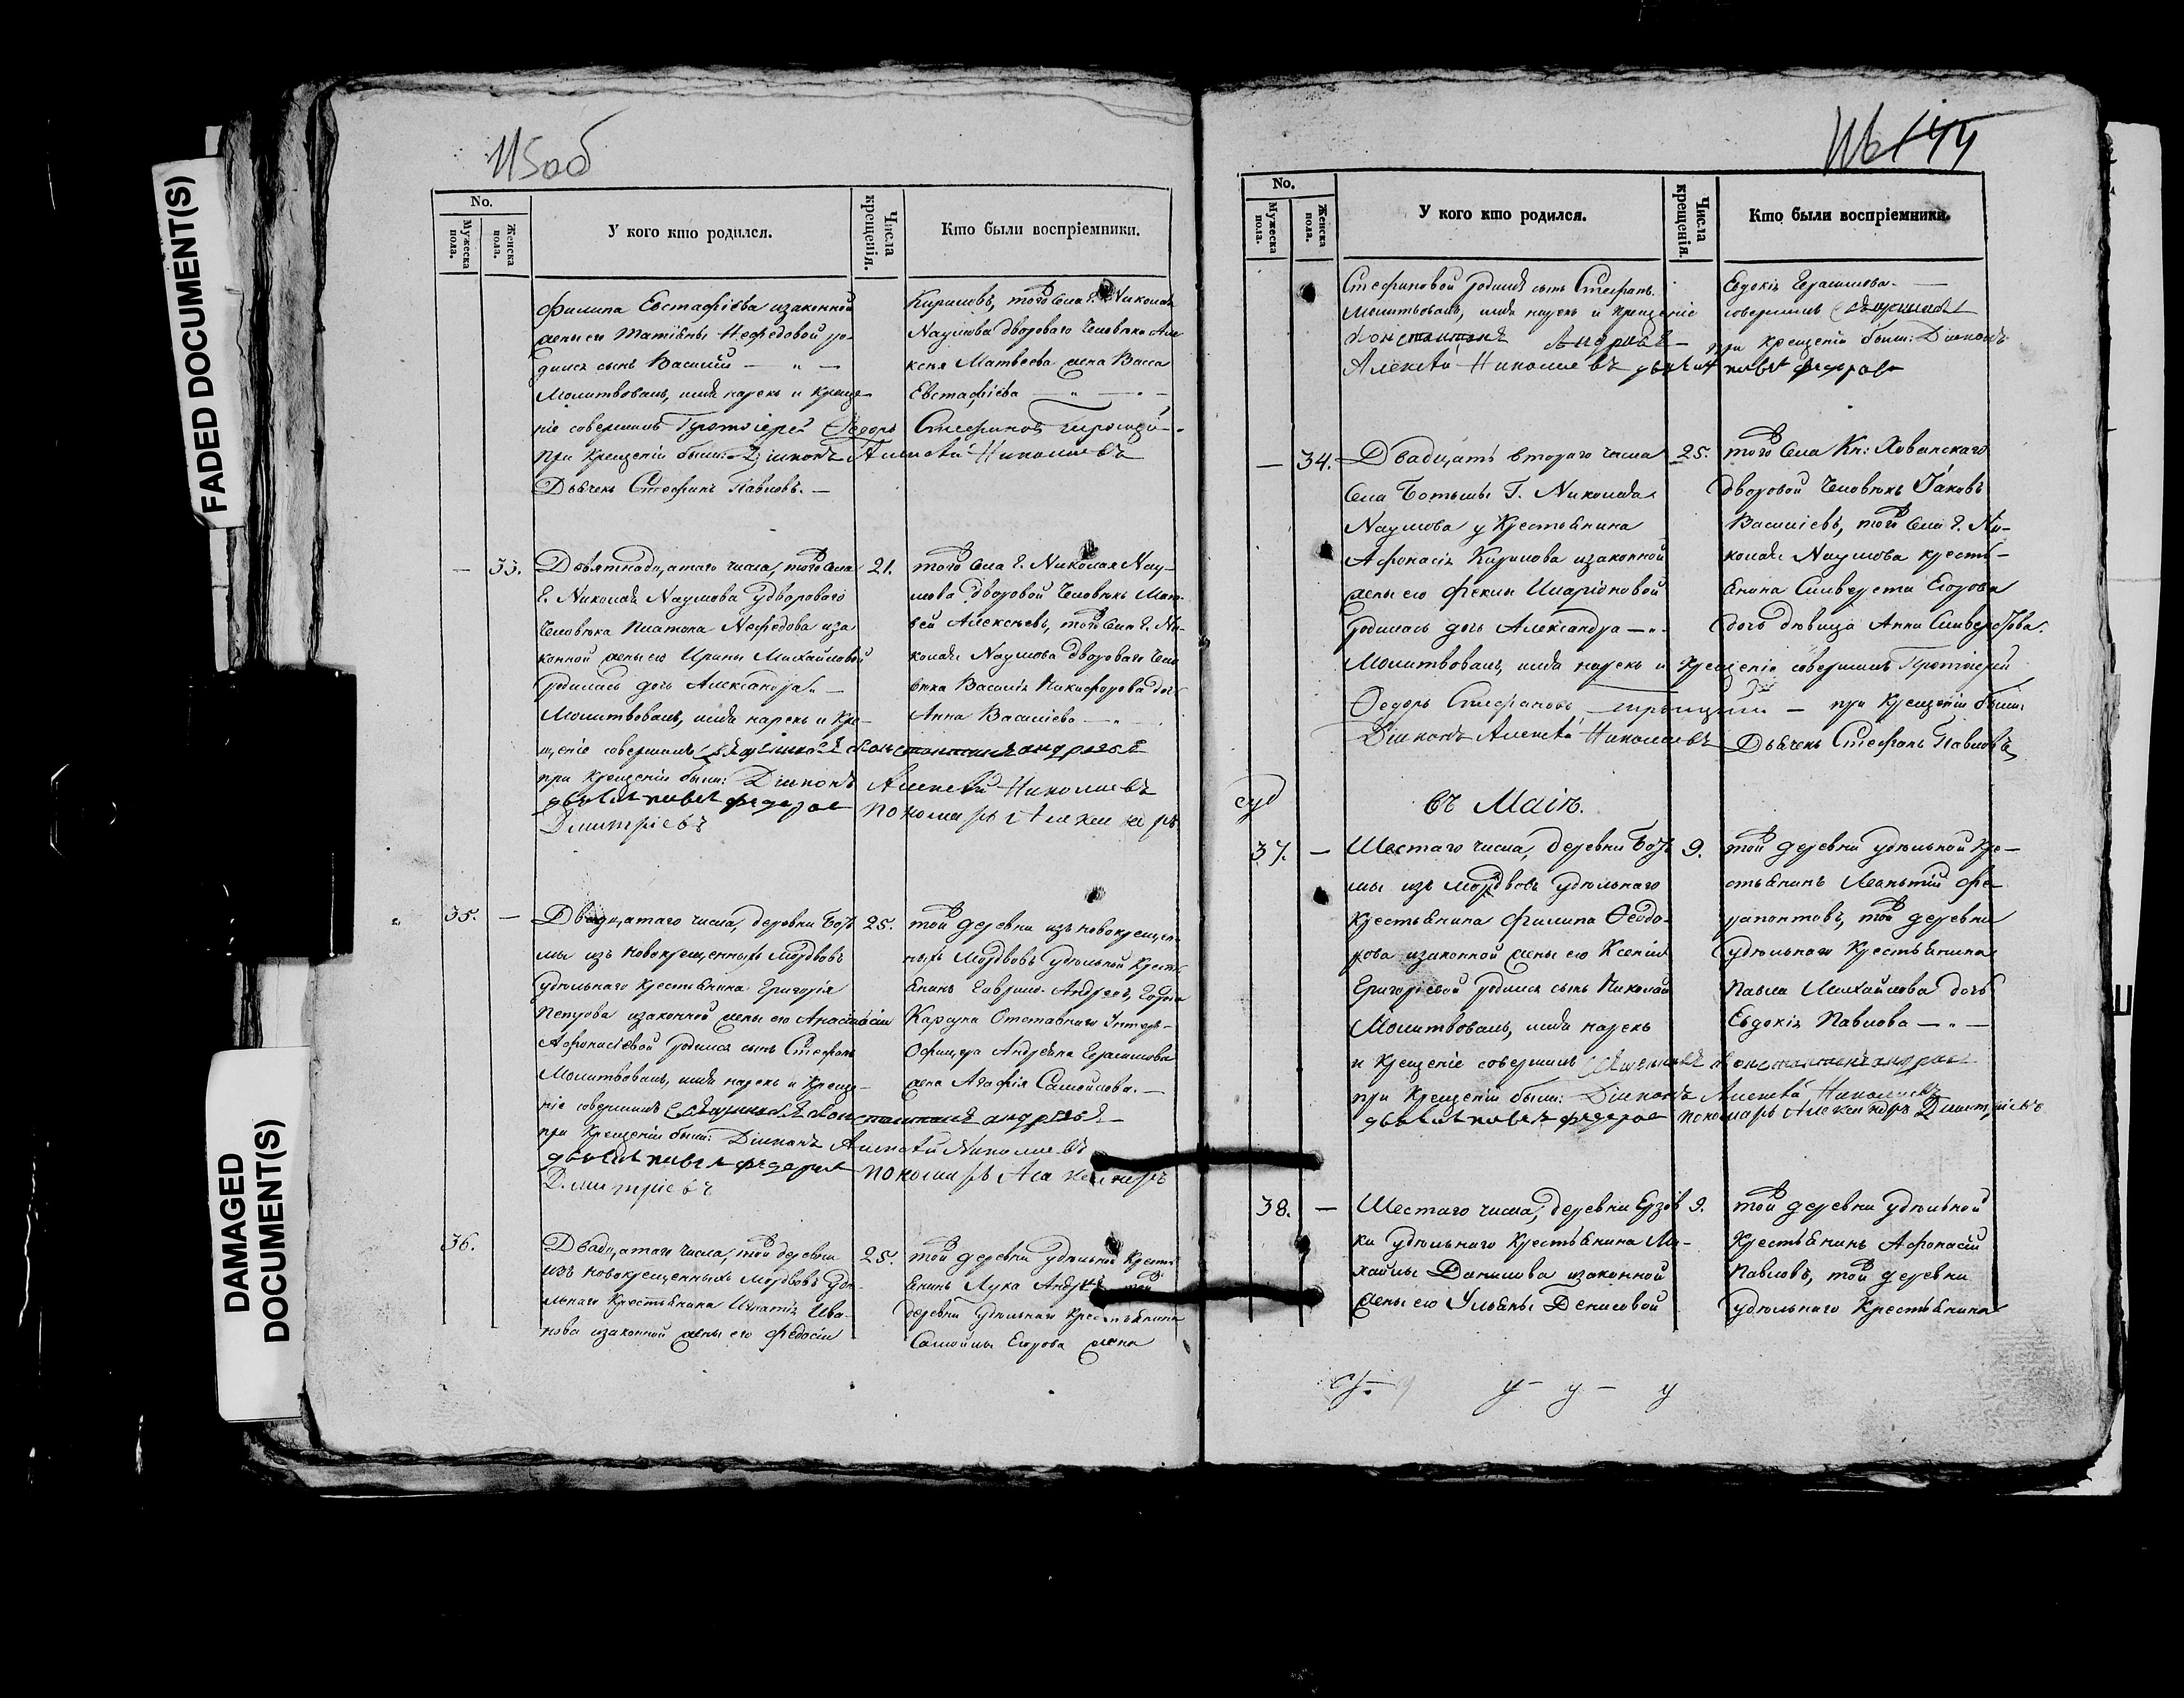 FADED DOCUMENT(S)
DAMAGED
DOCUMENT(S)
115об
No.
Мужеска пола.
Женска пола.
У кого кто родился.
Числа крещенія.
Кто были воспріемники.
Филипа Евстафіева изаконной
жены его Татіяны Нефедовой ро-
дился сынъ Василій — „ —
Молитвовалъ, имя нарекъ и креще-
ніе совершилъ Протоіерей Ѳедоръ Стефановъ
при крещеніи были: Діаконъ Алексѣй Николаевъ
Дьячекъ Стефанъ Павловъ. —
Кириловъ, того села Г. Николая
Наумова двороваго человѣка Але
ксѣя Матвеева жена Васса
Евстафіева
— 33.
Девятнадцатаго числа, того села
Г. Николая Наумова у двороваго
человѣка Платона Нефедова иза
конной жены его Ирины Михайловой
родилась дочь Александра. —
Молитвовалъ, имя нарекъ и кре-
щеніе совершилъ священникъ Константинъ Андреевъ
при крещеніи были: Діаконъ Алексѣй Николаевъ
дьячекъ Павелъ Федоровъ пономарь Александръ
Димитріевъ
21.
того села Г. Николая Нау-
мова дворовой человѣкъ Мат-
вей Алексѣевъ, того села Г. Ни-
колая Наумова двороваго чело
вѣка Василія Никифорова дочь
Анна Василіева
35. —
Двадцатаго числа, деревни Боть
мы изъ новокрещенныхъ Мордвовъ
удѣльнаго крестьянина Григорія
Петрова изаконной жены его Анастасіи
Афонасіевой родился сынъ Стефанъ
Молитвовалъ, имя нарекъ и креще-
ніе совершилъ священникъ Константинъ Андреевъ
при крещеніи были: Діаконъ Алексѣй Николаевъ
дьячекъ Павелъ Федоровъ пономарь Александръ
Димитріевъ
25.
той деревни изъ новокрещен-
ныхъ Мордвовъ удѣльной кресть
янинъ Гаврило Андреевъ, города
Карсуна Отставнаго Унтеръ-
Офицера Андреяна Герасимова
жена Агафія Самойлова. —
36.
Двадцатаго числа, той деревни
изъ новокрещенныхъ Мордвовъ удѣ-
льнаго крестьянина Игнатія Ива-
нова изаконной жены его Федосіи
25.
той деревни удѣльной кресть
янинъ Лука Андреевъ, той
деревни удѣльнаго крестьянина
Самойлы Егорова жена
116 144
No.
Мужеска пола.
Женска пола.
У кого кто родился.
Числа крещенія.
Кто были воспріемники.
Стефановой родился сынъ Стефанъ.
Молитвовалъ, имя нарекъ и крещеніе
Константинъ Андреевъ —
Алексѣй Николаевъ дьячекъ Павелъ Федоровъ
Евдокія Герасимова. —
совершилъ священникъ
при крещеніи были: Діаконъ
— 34.
Двадцать втораго числа
села Ботьмы Г. Николая
Наумова у крестьянина
Афонасія Кирилова изаконной
жены его Феклы Иларіоновой
родилась дочь Александра — „ —
Молитвовалъ, имя нарекъ и крещеніе совершилъ Протоіерей
Ѳедоръ Стефановъ — при крещеніи были:
Діаконъ Алексѣй Николаевъ Дьячекъ Стефанъ Павловъ
25.
того села Кн: Хованскаго
дворовой человѣкъ Іаковъ
Василіевъ, того села Г. Ни-
колая Наумова кресть-
янина Сильверста Егорова
дочь дѣвица Анна Сильверстова.
въ Маіѣ.
37. —
Шестаго числа, деревни Боть
мы изъ Мордвовъ удѣльнаго
крестьянина Филипа Ѳеодо-
рова изаконной жены его Ксеніи
Григорьевой родился сынъ Николай
Молитвовалъ, имя нарекъ
и крещеніе совершилъ священникъ Константинъ Андреевъ
при крещеніи были: Діаконъ Алексѣй Николаевъ
дьячекъ Павелъ Федоровъ пономарь Александръ Димитріевъ
9.
той деревни удѣльной кре-
стьянинъ Леонтій Фе-
рапонтовъ, той деревни
удѣльнаго крестьянина
Павла Михайлова дочь
Евдокія Павлова — „ —
38. —
Шестаго числа, деревни Ерзов
ки удѣльнаго крестьянина Ми-
хайлы Данилова изаконной
жены его Ульяны Денисовой
9.
той деревни удѣльной
крестьянинъ Афонасій
Павловъ, той деревни
удѣльнаго крестьянина